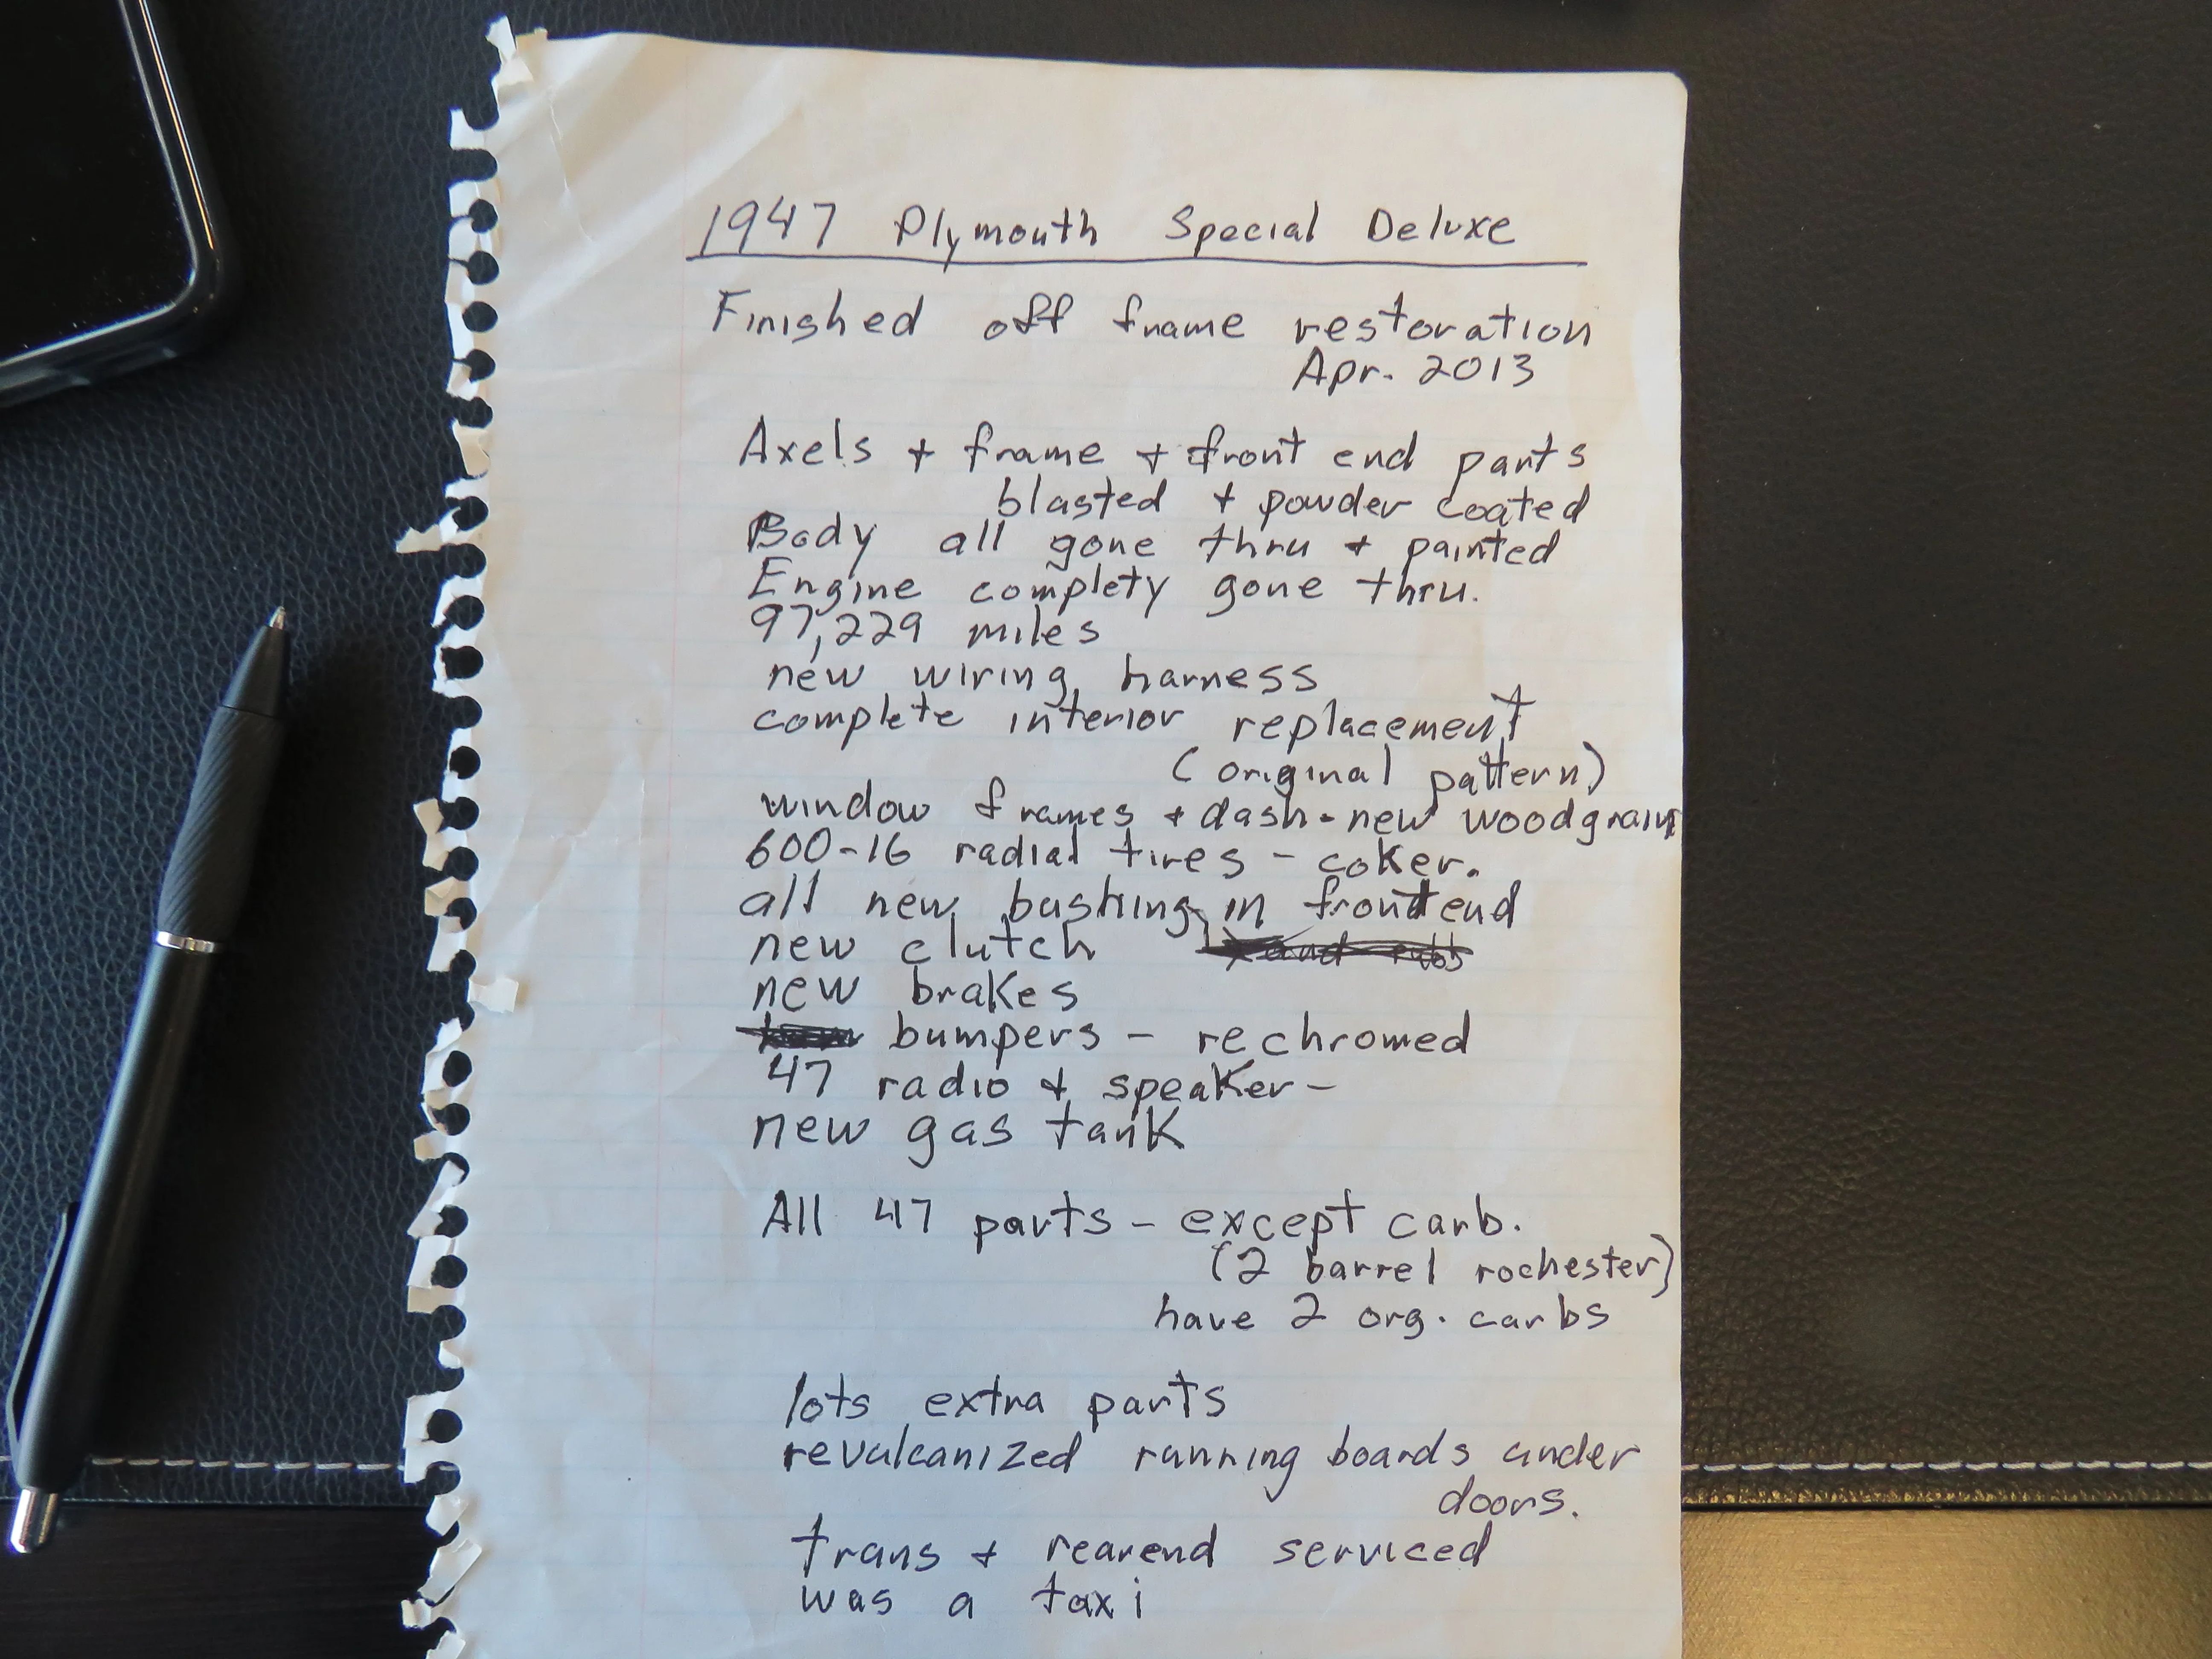 1947 Plymouth Special Deluxe
Finished off frame restoration
Apr. 2013
Axels + frame + front end parts
blasted + powder coated
Body all gone thru + painted
Engine complety gone thru.
97,229 miles
new wiring harness
complete interior replacement
(original pattern)
window frames + dash - new woodgrain
600-16 radial tires - coker.
all new bushing in frontend
new clutch
new brakes
bumpers - rechromed
47 radio + speaker -
new gas tank
All 47 parts - except carb.
(2 barrel rochester)
have 2 org. carbs
lots extra parts
revulcanized running boards under
doors.
trans + rearend serviced
was a taxi